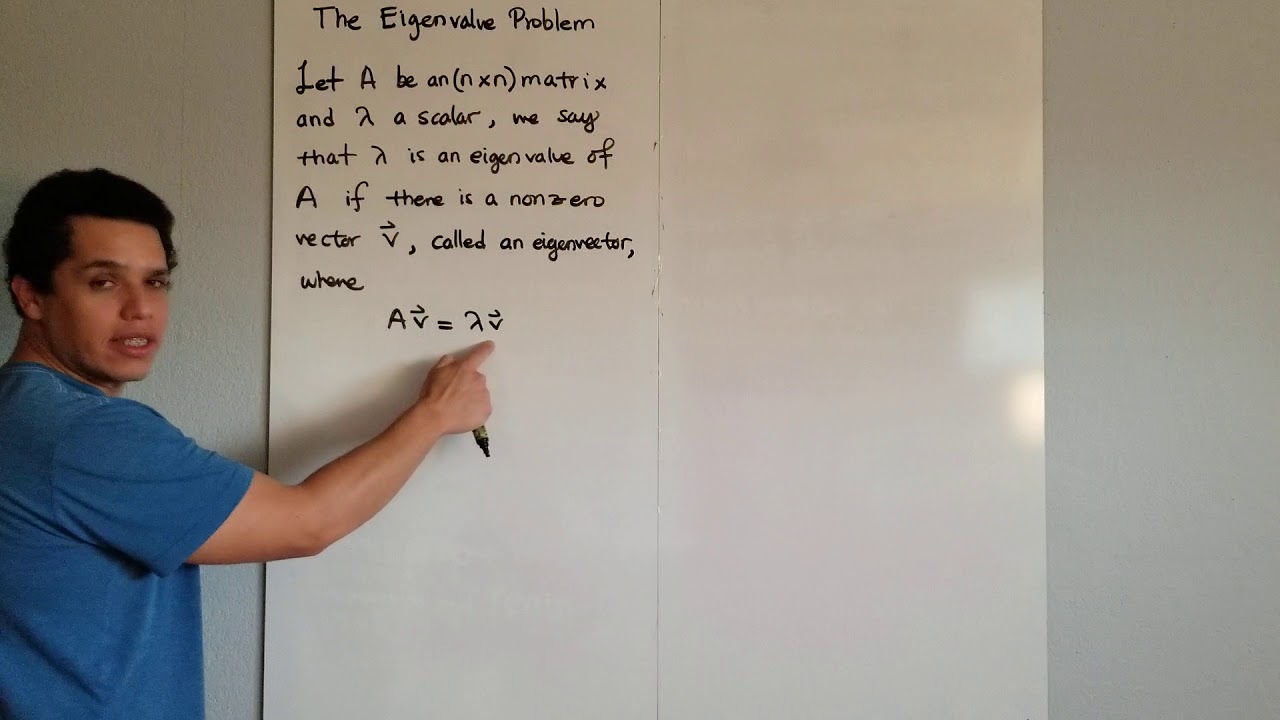 The Eigenvalue Problem
Let A be an (n×n) matrix
and λ a scalar, we say
that λ is an eigenvalue of
A if there is a nonzero
vector v⃗, called an eigenvector,
where
Av⃗ = λv⃗